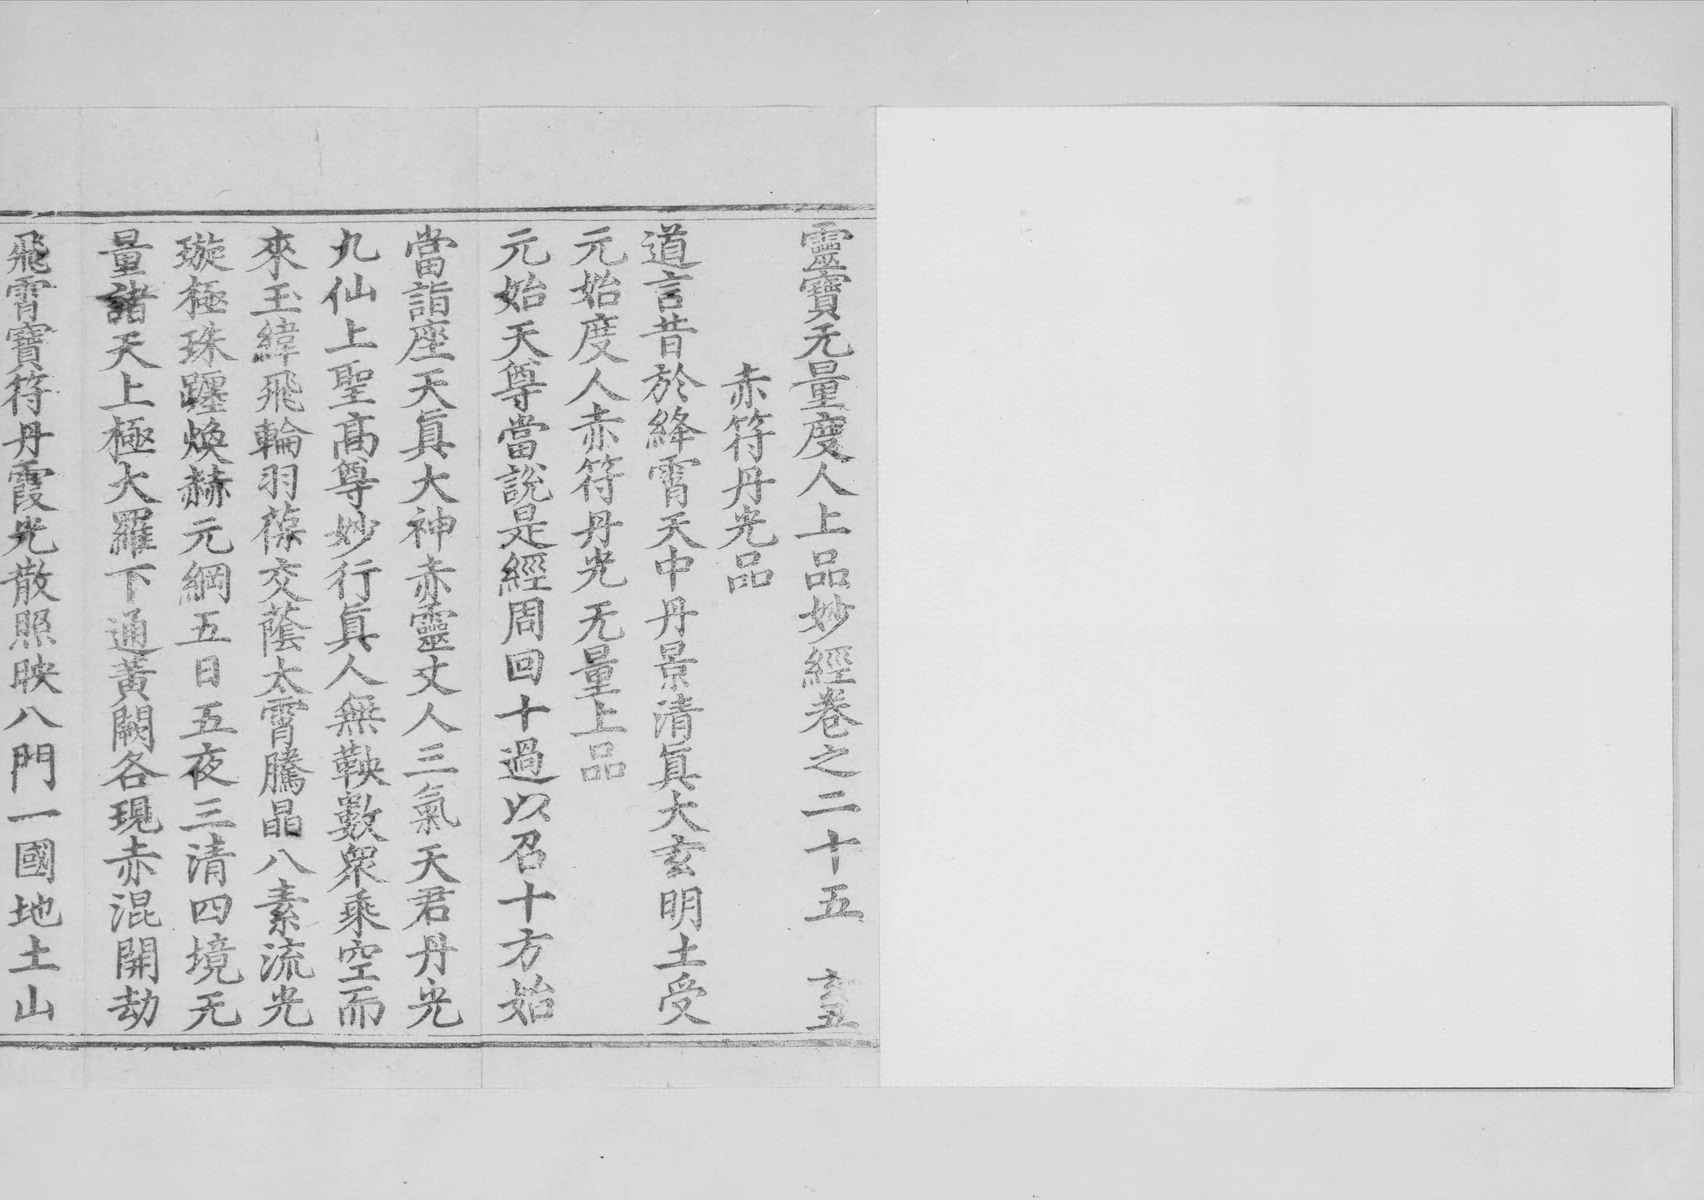 靈寶无量度人上品妙經卷之二十五　玄五
赤符丹光品
道言昔於絳霄天中丹景清眞大玄明土受
元始度人赤符丹光无量上品
元始天尊當說是經周回十過以召十方始
當詣座天眞大神赤靈丈人三氣天君丹光
九仙上聖高尊妙行眞人無鞅數衆乘空而
來玉緯飛輪羽葆交蔭太霄騰晶八素流光
璇極珠躔煥赫元綱五日五夜三清四境无
量諸天上極大羅下通黃闕各現赤混開劫
飛霄寶符丹霞光散照映八門一國地土山